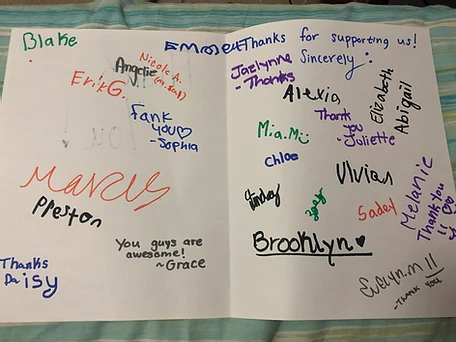 Blake
Nicole A.
Angelie
Erik G.
Fank
you♡
-Sophia
Marcus
Preston
You guys are
awesome!
~Grace
Thanks
Daisy
Thanks for supporting us!
Sincerely:
Jaelynne
- Thanks
Alexia
Elizabeth
Abigail
Thank
you
-Juliette
Mia.M:)
Chloe
Vivian
Melanie
Thank You
!!
Sadey
Brooklyn♥
Evelyn.m !!
-Thank you